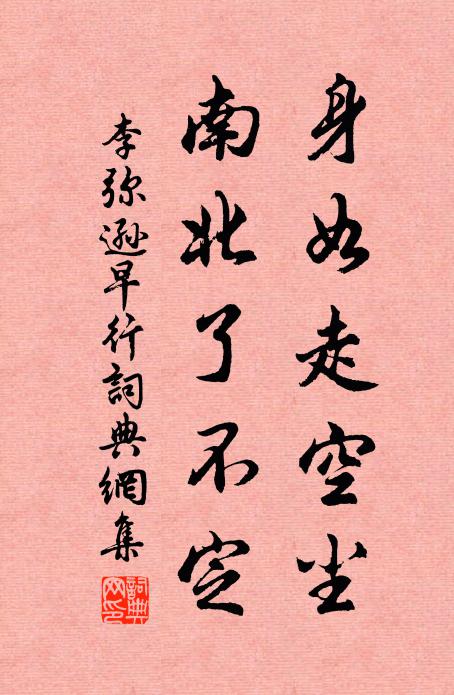 身如走空尘
南北了不定
李弥遜早行詞典網集
詞典網印